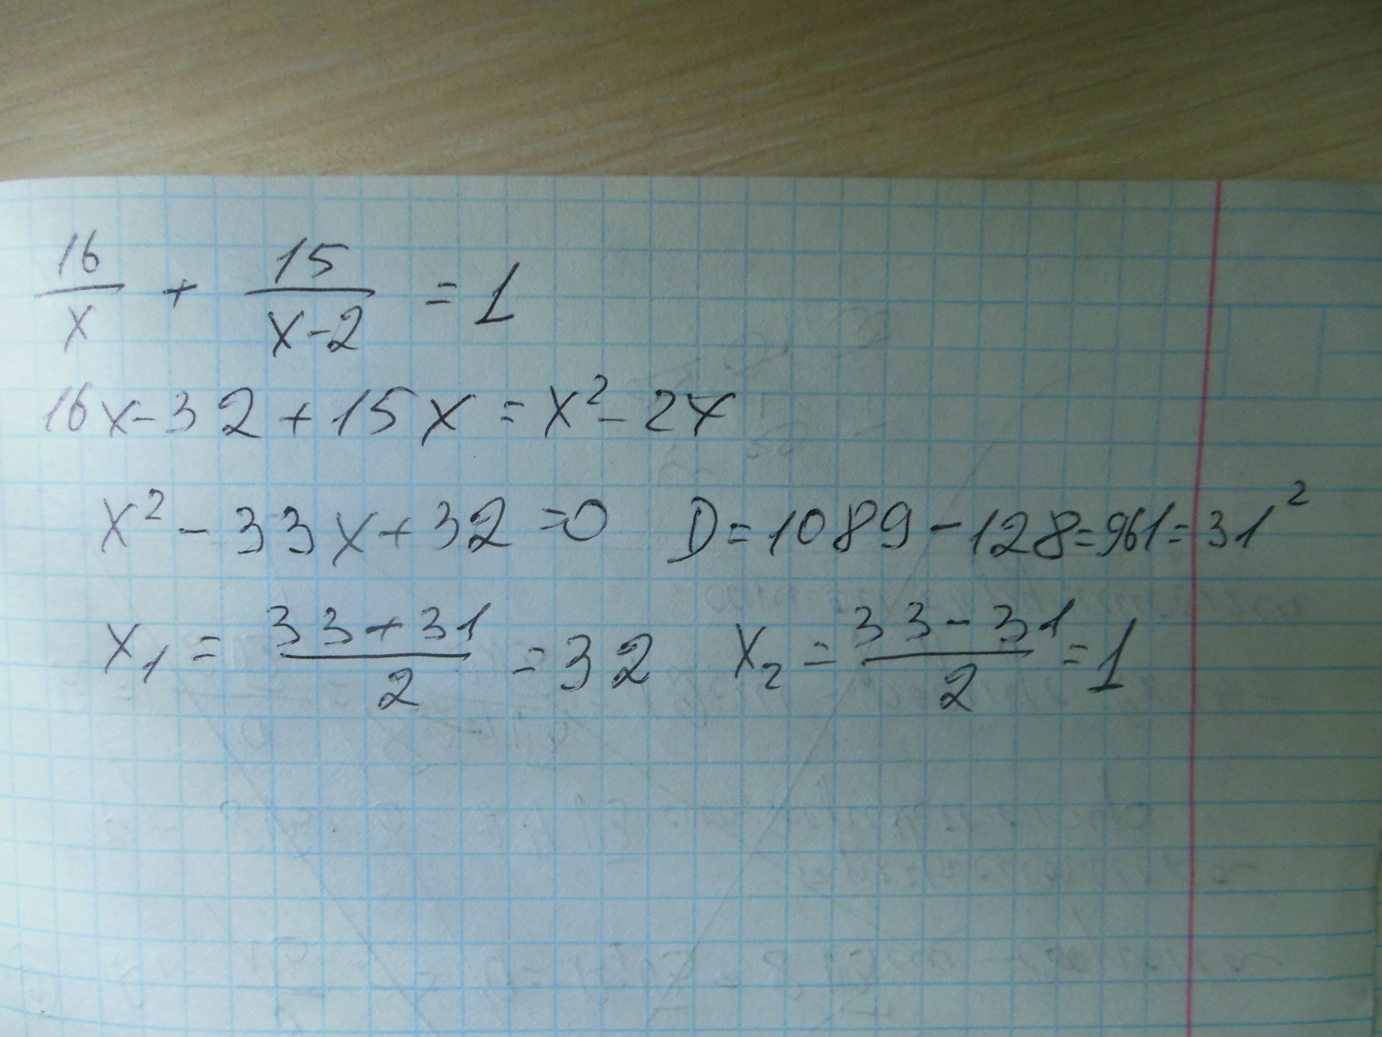 16/x + 15/(x-2) = 1
16x-32+15x = x²-2x
x²-33x+32=0 D=1089-128=961=31²
x₁ = (33+31)/2 = 32 x₂ = (33-31)/2 = 1